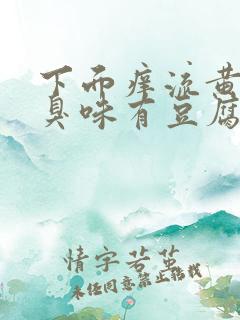 下而痒流黄
臭味有豆腐
情字若茧
未经同意禁止转载